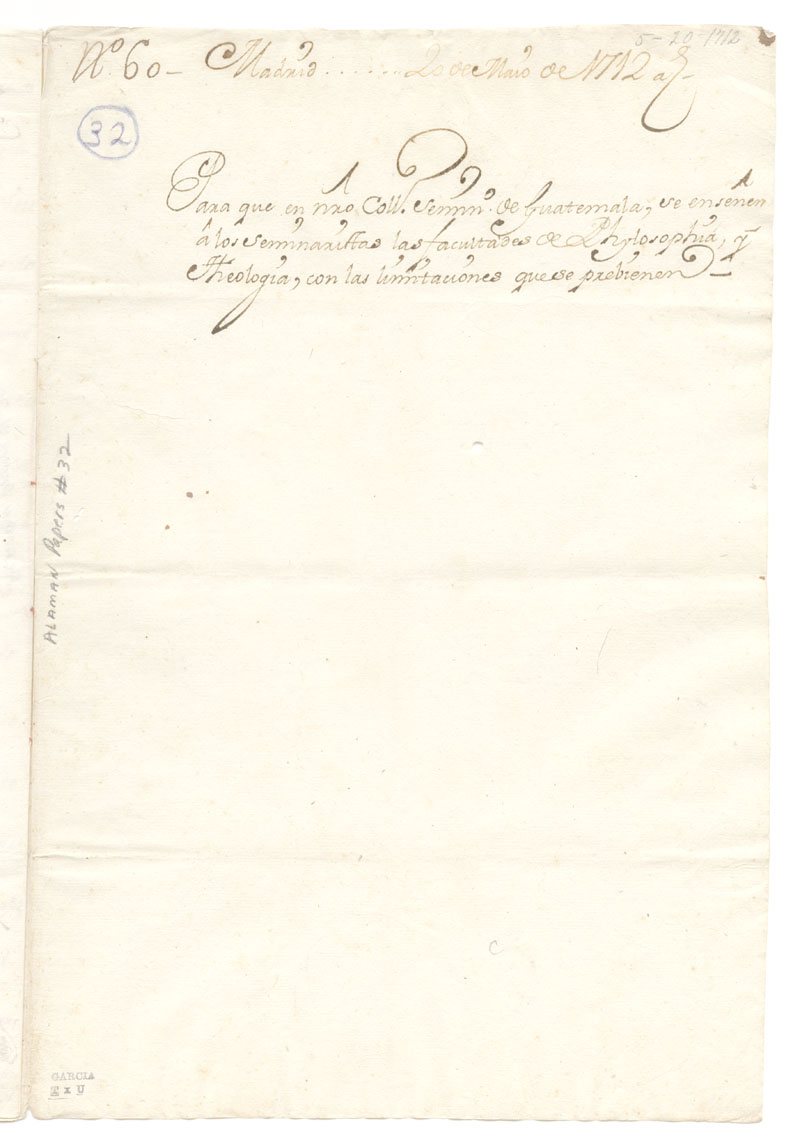 5-20-1712
Nº. 60- Madrid ....... 20 de Maio de 1712 as.
32
Para que en nro Coll. Semin.º de Guatemala, se enseñen
â los Seminaristtas las facultades de Phylosophia, y
Theologia, con las limittaciones que se prebienen
ALAMAN Papers # 32
GARCIA
TxU